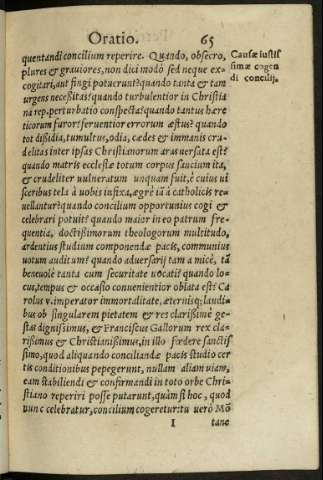 Oratio. 65
quentandi concilium reperire. Quando, obsecro,
plures & grauiores, non dici modò sed neque ex-
cogitari, aut fingi potuerunt? quando tanta & tam
urgens neceßitas? quando turbulentior in Christia
na rep. perturbatio conspecta? quando tantus hære
ticorum furor? seruentior errorum æstus? quando
tot dißidia, tumultus, odia, cædes & immanis cru-
delitas inter ipsas Christianorum aras uersata est?
quando matris ecclesiæ totum corpus saucium ita,
& crudeliter uulneratum unquam fuit, è cuius ui
sceribus tela à uobis infixa, ægrè iã à catholicis re-
uellantur? quando concilium opportunius cogi &
celebrari potuit? quando maior in eo patrum fre-
quentia, doctißimorum theologorum multitudo,
ardentius studium componendæ pacis, communius
uotum auditum? quando aduersarij tam amicè, tã
beneuolè tanta cum securitate uocati? quando lo-
cus, tempus & occasio conuenientior oblata est? Ca
rolus v. imperator immortalitate, æternisq; laudi-
bus ob singularem pietatem & res clarißimè ge-
stas dignissimus, & Franciscus Gallorum rex cla-
rißimus & Christianißimus, in illo fœdere sanctis
simo, quod aliquando conciliandæ pacis studio cer
tis conditionibus pepegerunt, nullam aliam uiam,
eam stabiliendi & confirmandi in toto orbe Chri-
stiano reperiri posse putarunt, quàm si hoc, quod
nunc celebratur, concilium cogeretur: tu uerò Mõ
I tane
Causæ iustis
simæ cogen
di concilij.